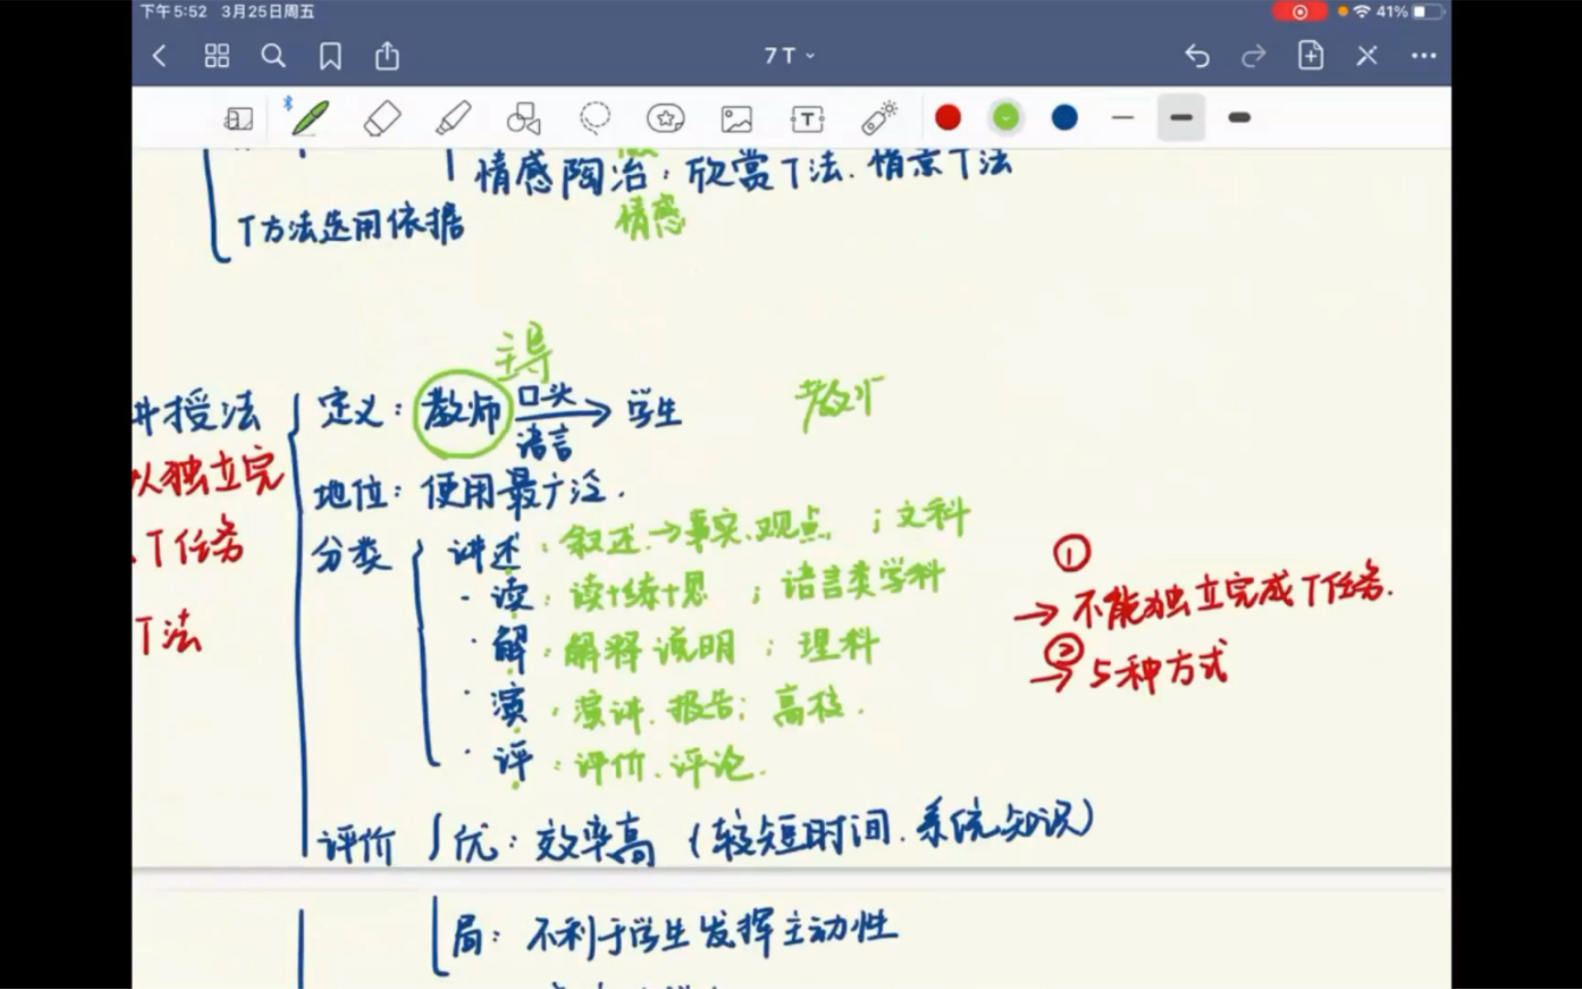 下午5:52 3月25日周五
41%
7 T
T
情感陶冶：欣赏T法．情景T法
情感
T方法选用依据
主导
讲授法
定义：教师 口头 语言 → 学生
地位：使用最广泛．
以独立完
T任务
T法
分类
讲述：叙述→事实、观点；文科
- 读：读+练+思；语言类学科
· 解：解释说明；理科
· 演：演讲．报告；高校．
· 评：评价．评论．
①
→ 不能独立完成T任务．
②
→ 5种方式
评价 优：效率高（较短时间．系统知识）
局：不利于学生发挥主动性